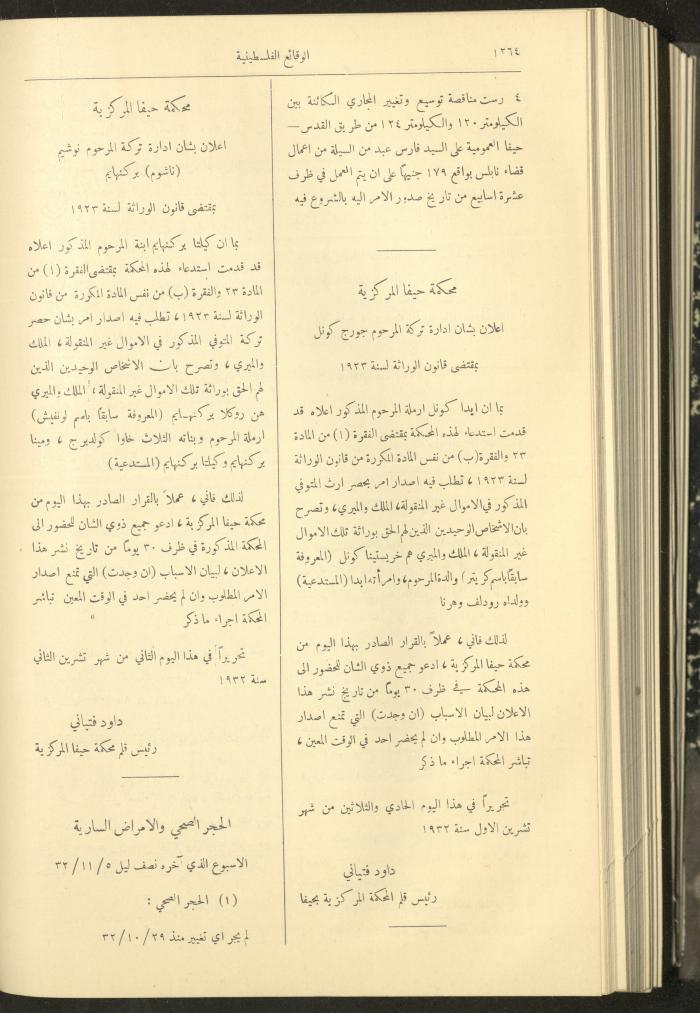 ١٢٦٤
الوقائع الفلسطينية
٤ رست مناقصة توسيع وتغيير المجاري الكائنة بين
الكيلومتر ١٢٠ والكيلومتر ١٢٤ من طريق القدس —
حيفا العمومية على السيد فارس عبد من السيلة من اعمال
قضاء نابلس بواقع ١٧٩ جنيهاً على ان يتم العمل في ظرف
عشرة اسابيع من تاريخ صدور الامر اليه بالشروع فيه
محكمة حيفا المركزية
اعلان بشان ادارة تركة المرحوم جورج كونل
بمقتضى قانون الوراثة لسنة ١٩٢٣
بما ان ايدا كونل ارملة المرحوم المذكور اعلاه قد
قدمت استدعاء لهذه المحكمة بمقتضى الفقرة (١) من المادة
٢٣ والفقرة (ب) من نفس المادة المكررة من قانون الوراثة
لسنة ١٩٢٣ ، تطلب فيه اصدار امر بحصر ارث المتوفي
المذكور في الاموال غير المنقولة، الملك والميري ، وتصرح
بان الاشخاص الوحيدين الذين لهم الحق بوراثة تلك الاموال
غير المنقولة ، الملك والميري هم خريستينا كونل (المعروفة
سابقاً باسم كريتر) والدة المرحوم، وامرأته ايدا (المستدعية)
وولداه رودلف وهرنا
لذلك فاني ، عملاً بالقرار الصادر بهذا اليوم من
محكمة حيفا المركزية ، ادعو جميع ذوي الشان للحضور الى
هذه المحكمة في ظرف ٣٠ يوماً من تاريخ نشر هذا
الاعلان لبيان الاسباب (ان وجدت) التي تمنع اصدار
هذا الامر المطلوب وان لم يحضر احد في الوقت المعين ،
تباشر المحكمة اجراء ما ذكر
تحريراً في هذا اليوم الحادي والثلاثين من شهر
تشرين الاول سنة ١٩٣٢
داود فتياني
رئيس قلم المحكمة المركزية بحيفا
محكمة حيفا المركزية
اعلان بشان ادارة تركة المرحوم نوشيم
(ناشوم) بركنهايم
بمقتضى قانون الوراثة لسنة ١٩٢٣
بما ان كيلتا بركنهايم ابنة المرحوم المذكور اعلاه
قد قدمت استدعاء لهذه المحكمة بمقتضى الفقرة (١) من
المادة ٢٣ والفقرة (ب) من نفس المادة المكررة من قانون
الوراثة لسنة ١٩٢٣ ، تطلب فيه اصدار امر بشان حصر
تركة المتوفي المذكور في الاموال غير المنقولة ، الملك
والميري ، وتصرح بان الاشخاص الوحيدين الذين
لهم الحق بوراثة تلك الاموال غير المنقولة ، الملك والميري
هن روكلا بركنهايم (المعروفة سابقاً باسم لونفيش)
ارملة المرحوم وبناته الثلاث خاوا كولدبرج ، ومينا
بركنهايم وكيلتا بركنهايم (المستدعية)
لذلك فاني ، عملاً بالقرار الصادر بهذا اليوم من
محكمة حيفا المركزية ، ادعو جميع ذوي الشان للحضور الى
المحكمة المذكورة في ظرف ٣٠ يوماً من تاريخ نشر هذا
الاعلان ، لبيان الاسباب (ان وجدت) التي تمنع اصدار
الامر المطلوب وان لم يحضر احد في الوقت المعين تباشر
المحكمة اجراء ما ذكر
تحريراً في هذا اليوم الثاني من شهر تشرين الثاني
سنة ١٩٣٢
داود فتياني
رئيس قلم محكمة حيفا المركزية
الحجر الصحي والامراض السارية
الاسبوع الذي آخره نصف ليل ٥/١١/٣٢
(١) الحجر الصحي :
لم يجر اي تغيير منذ ٢٩/١٠/٣٢